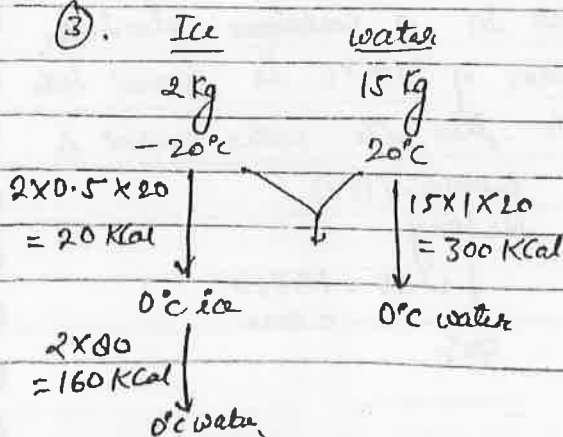 ③. Ice water
2 Kg 15 Kg
-20°C 20°C
2×0.5×20
= 20 KCal
15×1×20
= 300 KCal
0°C ice 0°C water
2×80
= 160 KCal
0°C water